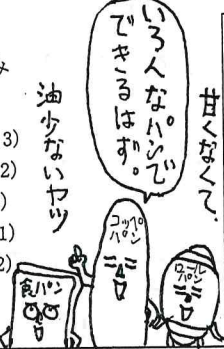 甘くなくて、
いろんなパンで
できるはず。
油少ないヤツ
み
3)
2)
)
1)
2)
食パン
コッペ
パン
ロール
パン